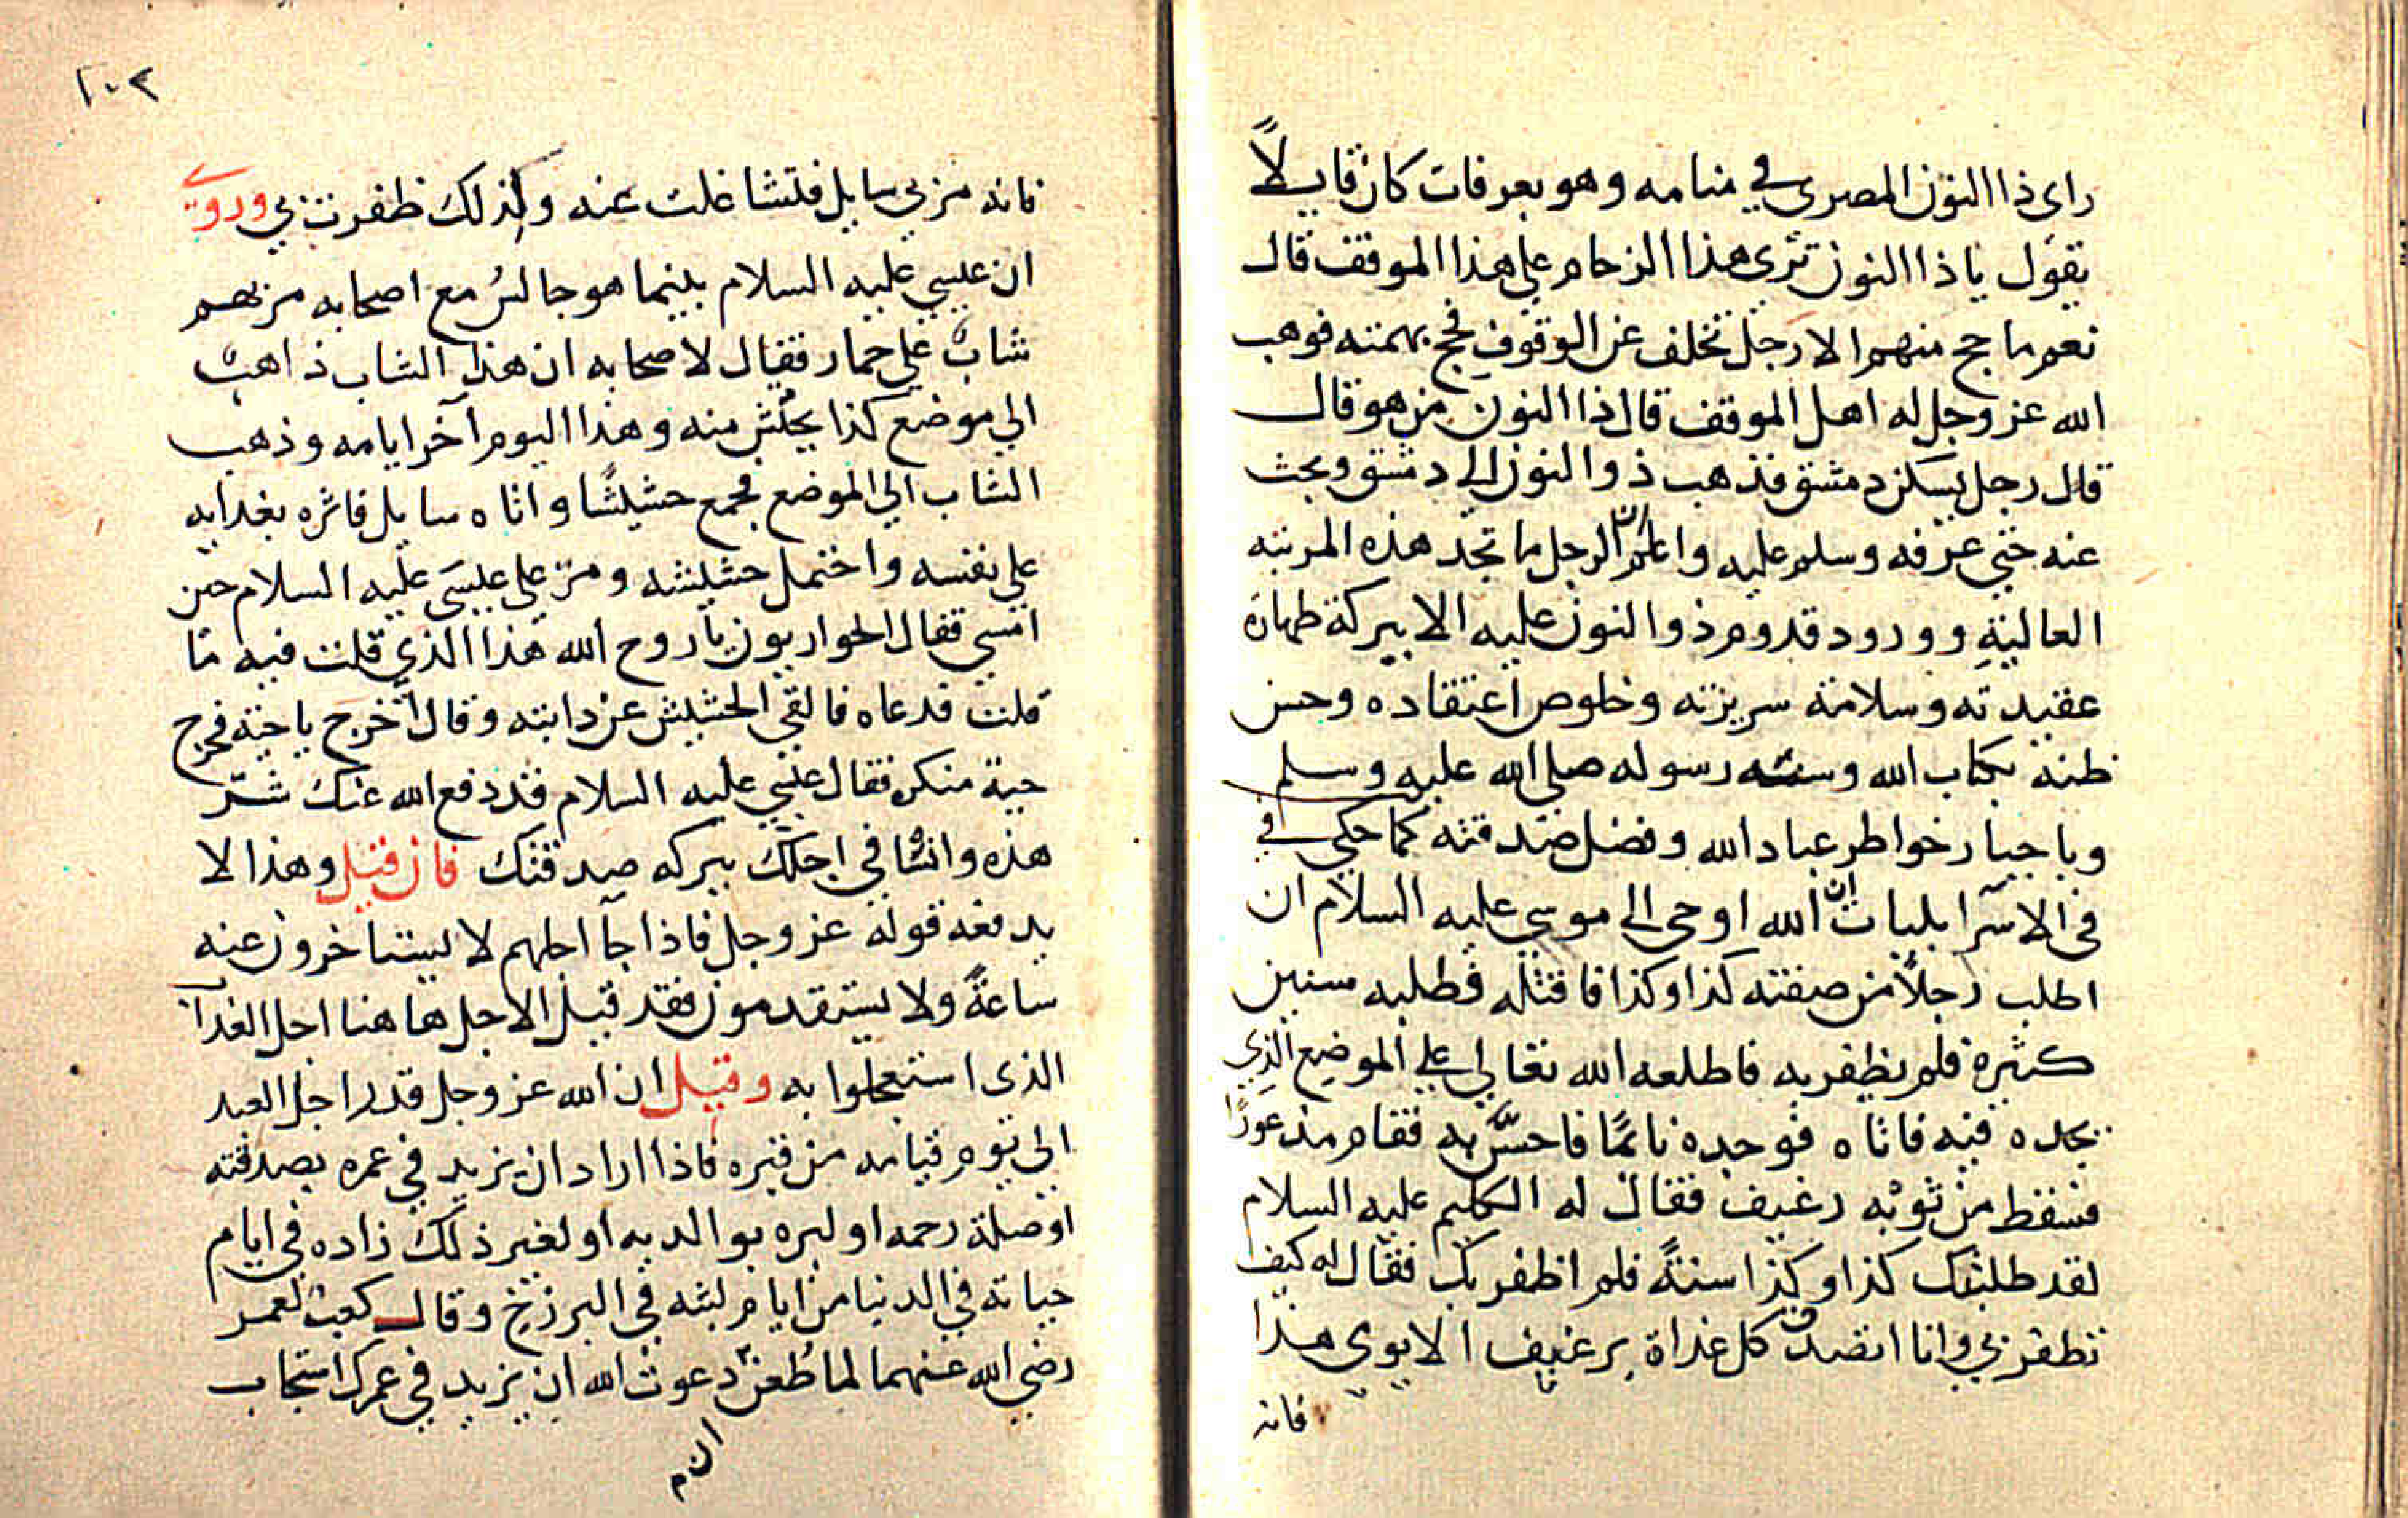 راى ذا النون المصرى في منامه وهو بعرفات كان قايلاً
يقول يا ذا النون ترى هذا الزحام على هذا الموقف قال
نعم ما حج منهم الا رجل تخلف عن الوقوف فحج بهمته فوهب
الله عز وجل له اهل الموقف قال ذا النون من هو قال
قال رجل يسكن دمشق فذهب ذوالنون الى دمشق وبحث
عنه حتي عرفه وسلم عليه واعلم ان الرجل ما تجد هذه المرتبه
العالية وورود قدوم ذوالنون عليه الا ببركة طهارة
عقيدته وسلامة سريرته وخلوص اعتقاده وحسن
ظنه بكتاب الله وسنته رسوله صلى الله عليه وسلم
وبا جبار خواطر عباد الله وفضل صدقته كما حكي في
في الاسرايليات ان الله اوحى الى موسي عليه السلام ان
اطلب رجلاً من صفته كذا وكذا فاقتله فطلبه سنين
كثيرة فلم يظفر به فاطلعه الله تعالي علي الموضع الذي
يجده فيه فاتاه فوجده نائمًا فاحسَّ به فقام مذعورًا
فسقط من ثوبه رغيف فقال له الكليم عليه السلام
لقد طلبتك كذا وكذا سنةً فلم اظفر بك فقال له كيف
تظفر بي وانا اتصدق كل غداة برغيف الا يوى هذا
فانه
١٠٢
فانه مر بي سايل فتشاغلت عنه وكذلك ظفرت بي وروي
ان عيسي عليه السلام بينما هو جالسُ مع اصحابه مر بهم
شابٌ علي حمار فقال لاصحابه ان هذا الشاب ذاهبٌ
الي موضع كذا يحتش منه وهذا اليوم آخر ايامه وذهب
الشاب الي الموضع فجمع حشيشًا واتاه سايل فاثره بغدايه
علي نفسه واحتمل حشيشه ومرّ علي عيسَى عليه السلام حين
امسي فقال الحواريون يا روح الله هذا الذي قلت فيه ما
قلت فدعاه فالقي الحشيش عن دابته وقال اخرج يا حية فخرج
حية منكره فقال عيسي عليه السلام قد دفع الله عنك شرّ
هذه وانشا في اجلك ببركه صدقتك فان قيل وهذا لا
يدفعه قوله عز وجل فاذا جآ اجلهم لا يستاخرون عنه
ساعةً ولا يستقدمون فقد قيل الاجل هاهنا اجل العذاب
الذى استعجلوا به وقيل ان الله عز وجل قدر اجل العبد
الي يوم قيامه من قبره فاذا اراد ان يزيد في عمره بصدقته
اوصلة رحمه او لبره بوالديه او لغير ذلك زاده في ايام
حياته في الدنيا من ايام لبثه في البرزخ وقال كعب لعمر
رضي الله عنهما لما طُعن دعوت الله ان يزيد في عمرك استجاب